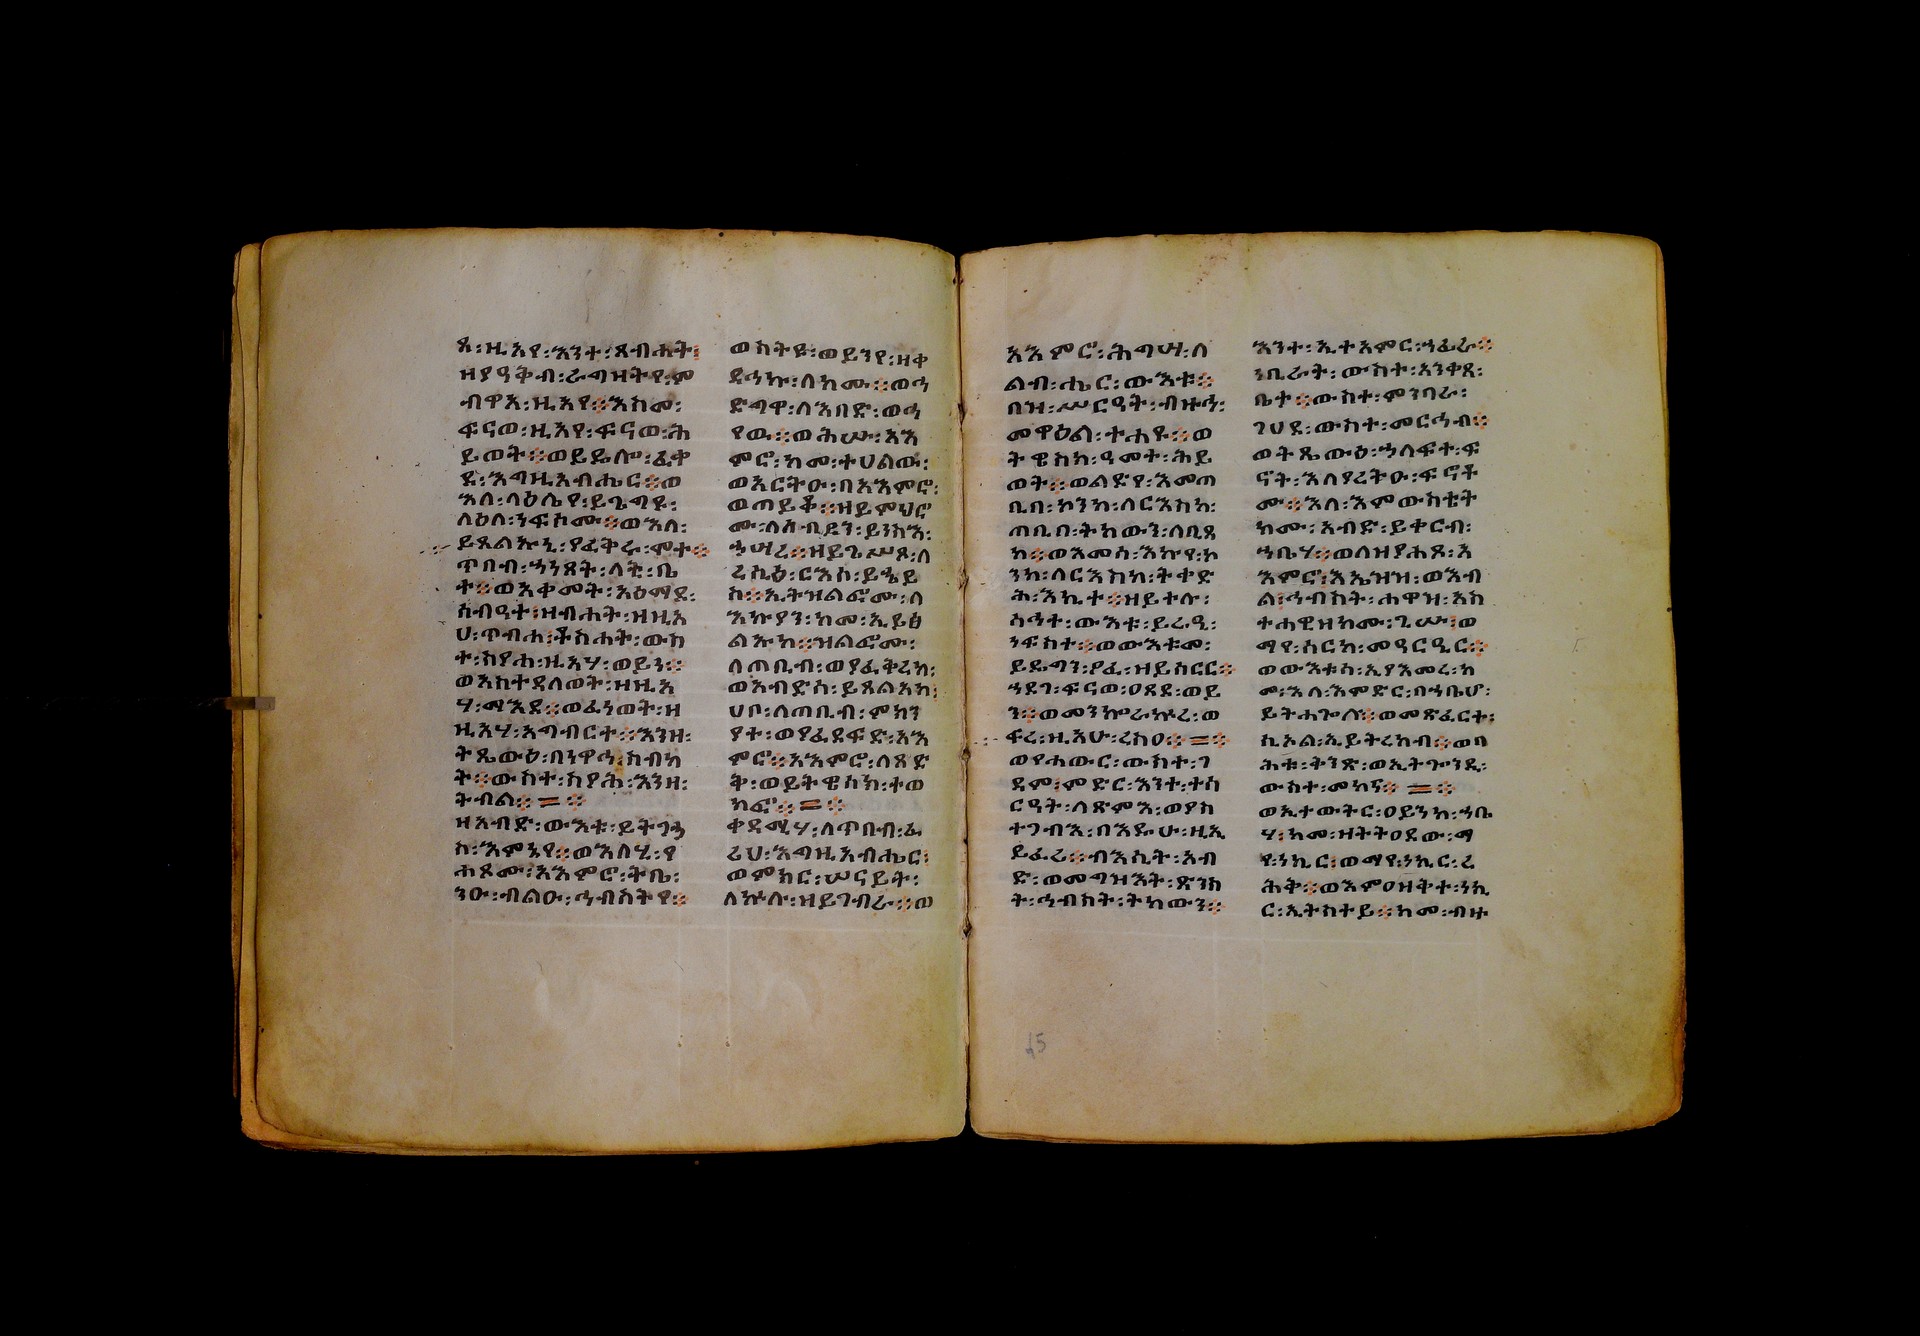 ጸ፡ዚአየ፡እንተ፡ጸብሐት፡
ዘያዓቅብ፡ራግዛትየ፡ም
ብዋእ፡ዚአየ፨እስመ፡
ፍናወ፡ዚአየ፡ፍናወ፡ሕ
ይወት፨ወይዴሎ፡ፈቀ
ደ፡እግዚአብሔር፨ወ
እለ፡ላዕሌየ፡ይጌግዩ፡
ለዕለ፡ነፍሶሙ፨ወእለ፡
ይጸልኡኒ፡ያፈቅሩ፡ሞተ፨
ጥበብ፡ኀነጸት፡ላቲ፡ቤ
ተ፨ወአቀመት፡አዕማደ፡
ሰብዓተ፡ዘብሐት፡ዘዚአ
ሃ፡ጥብሐ፡ቶስሐት፡ውስ
ተ፡ስያሕ፡ዚአሃ፡ወይነ፨
ወአስተዳለወት፡ዘዚአ
ሃ፡ማእደ፨ወፈነወት፡ዘ
ዚአሃ፡አግብርተ፨እንዘ፡
ትጼውዕ፡በነዋኅ፡ስብከ
ት፨ውስተ፡ስያሕ፡እንዘ፡
ትብል፨=፨
ዘአብድ፡ውእቱ፡ይትገኃ
ስ፡እምኔየ፨ወእለሂ፡የ
ሐጸሙ፡አእምሮ፡ትቤ፡
ንዑ፡ብልዑ፡ኅብስትየ፨
ወስትዩ፡ወይንየ፡ዘቀ
ዳሕኩ፡ለክሙ፨ወኅ
ድግዋ፡ለእበድ፡ወኅ
የዉ፨ወሕሡ፡አእ
ምሮ፡ከመ፡ተሀልዉ፡
ወአርትዑ፡በአእምሮ፡
ወጠይቆ፨ዘይምህሮ
ሙ፡ለአብዳን፡ይነስእ፡
ኀሣረ፨ዘይጌሥጾ፡ለ
ረሲዕ፡ርእሰ፡ይዔይ
ስ፨ኢትዝልፎሙ፡ለ
እኩያን፡ከመ፡ኢይፅ
ልኡከ፨ዝልፎሙ፡
ለጠቢብ፡ወያፈቅረከ፡
ወአብድሰ፡ይጸልአከ፡
ሀቦ፡ለጠቢብ፡ምክን
ያተ፡ወያፈደፍድ፡አእ
ምሮ፨አእምሮ፡ለጻድ
ቅ፡ወይትዌሰክ፡ተወ
ክፎ፨=፨
ቀዳሚሃ፡ለጥበብ፡ፈ
ሪሀ፡እግዚአብሔር፡
ወምክር፡ሠናይት፡
ለኵሉ፡ዘይገብራ፨ወ
አእምሮ፡ሕግሣ፡ለ
ልብ፡ሔር፡ውእቱ፨
በዝ፡ሥርዓት፡ብዙኅ፡
መዋዕል፡ተሐዩ፨ወ
ትዌስክ፡ዓመተ፡ሕይ
ወት፨ወልድየ፡እመጠ
ቢበ፡ኮንከ፡ለርእስከ፡
ጠቢበ፡ትከውን፡ለቢጸ
ከ፨ወእመሰ፡እኩየ፡ኮ
ንከ፡ለርእስከ፡ትቀድ
ሕ፡እኪተ፨ዘይተሉ፡
ሰኅተ፡ውእቱ፡ይሬዒ፡
ነፍስተ፨ወውእቱመ፡
ይዴግን፡ዖፈ፡ዘይሰርር፨
ኀደገ፡ፍናወ፡ዐጸደ፡ወይ
ን፨ወመንኵራኵረ፡ወ
ፍረ፡ዚአሁ፡ረስዐ፨=፨
ወየሐውር፡ውስተ፡ገ
ዳም፡ምድር፡እንተ፡ተስ
ርዓት፡ለጽምእ፡ወያስ
ተገብእ፡በእዴሁ፡ዚኢ
ይፈሪ፨ብእሲት፡አብ
ድ፡ወመግዝእት፡ጽንስ
ት፡ኅብስት፡ትከውን፨
እንተ፡ኢተአምር፡ኀፊራ፨
ነቢራት፡ውስተ፡አንቀጸ፡
ቤት፨ውስተ፡ምንባራ፡
ገሀደ፡ውስተ፡መርኅብ፨
ወትጼውዕ፡ኀላፍተ፡ፍ
ኖት፡እለያረትዑ፡ፍኖቶ
ሙ፨እለ፡እምውስቴት
ክሙ፡አብድ፡ይቀርብ፡
ኀቤሃ፨ወለዘያሐጾ፡አ
እምሮ፡እኤዝዝ፡ወእብ
ል፡ኅብስት፡ሐዋዝ፡እስ
ተሐዊዘክሙ፡ጊሡ፡ወ
ማየ፡ሰርከ፡መዓርዒር፨
ወውእቱሰ፡ኢያእመረ፡ከ
መ፡እለ፡እምድር፡በኀቤሆ፡
ይትሐጐሉ፨ወመጽፈርተ፡
ሲኦል፡ኢይትረከብ፨ወባ
ሕቱ፡ቅንጽ፡ወኢትጐንዲ፡
ውስተ፡መከና፨=፨
ወኢተውትር፡ዐይነከ፡ኀቤ
ሃ፡ከመ፡ዘትትዐደው፡ማ
የ፡ነኪር፡ወማየ፡ነኪር፡ረ
ሕቅ፨ወእምዐዘቅተ፡ነኪ
ር፡ኢትስተይ፨ከመ፡ብዙ
45